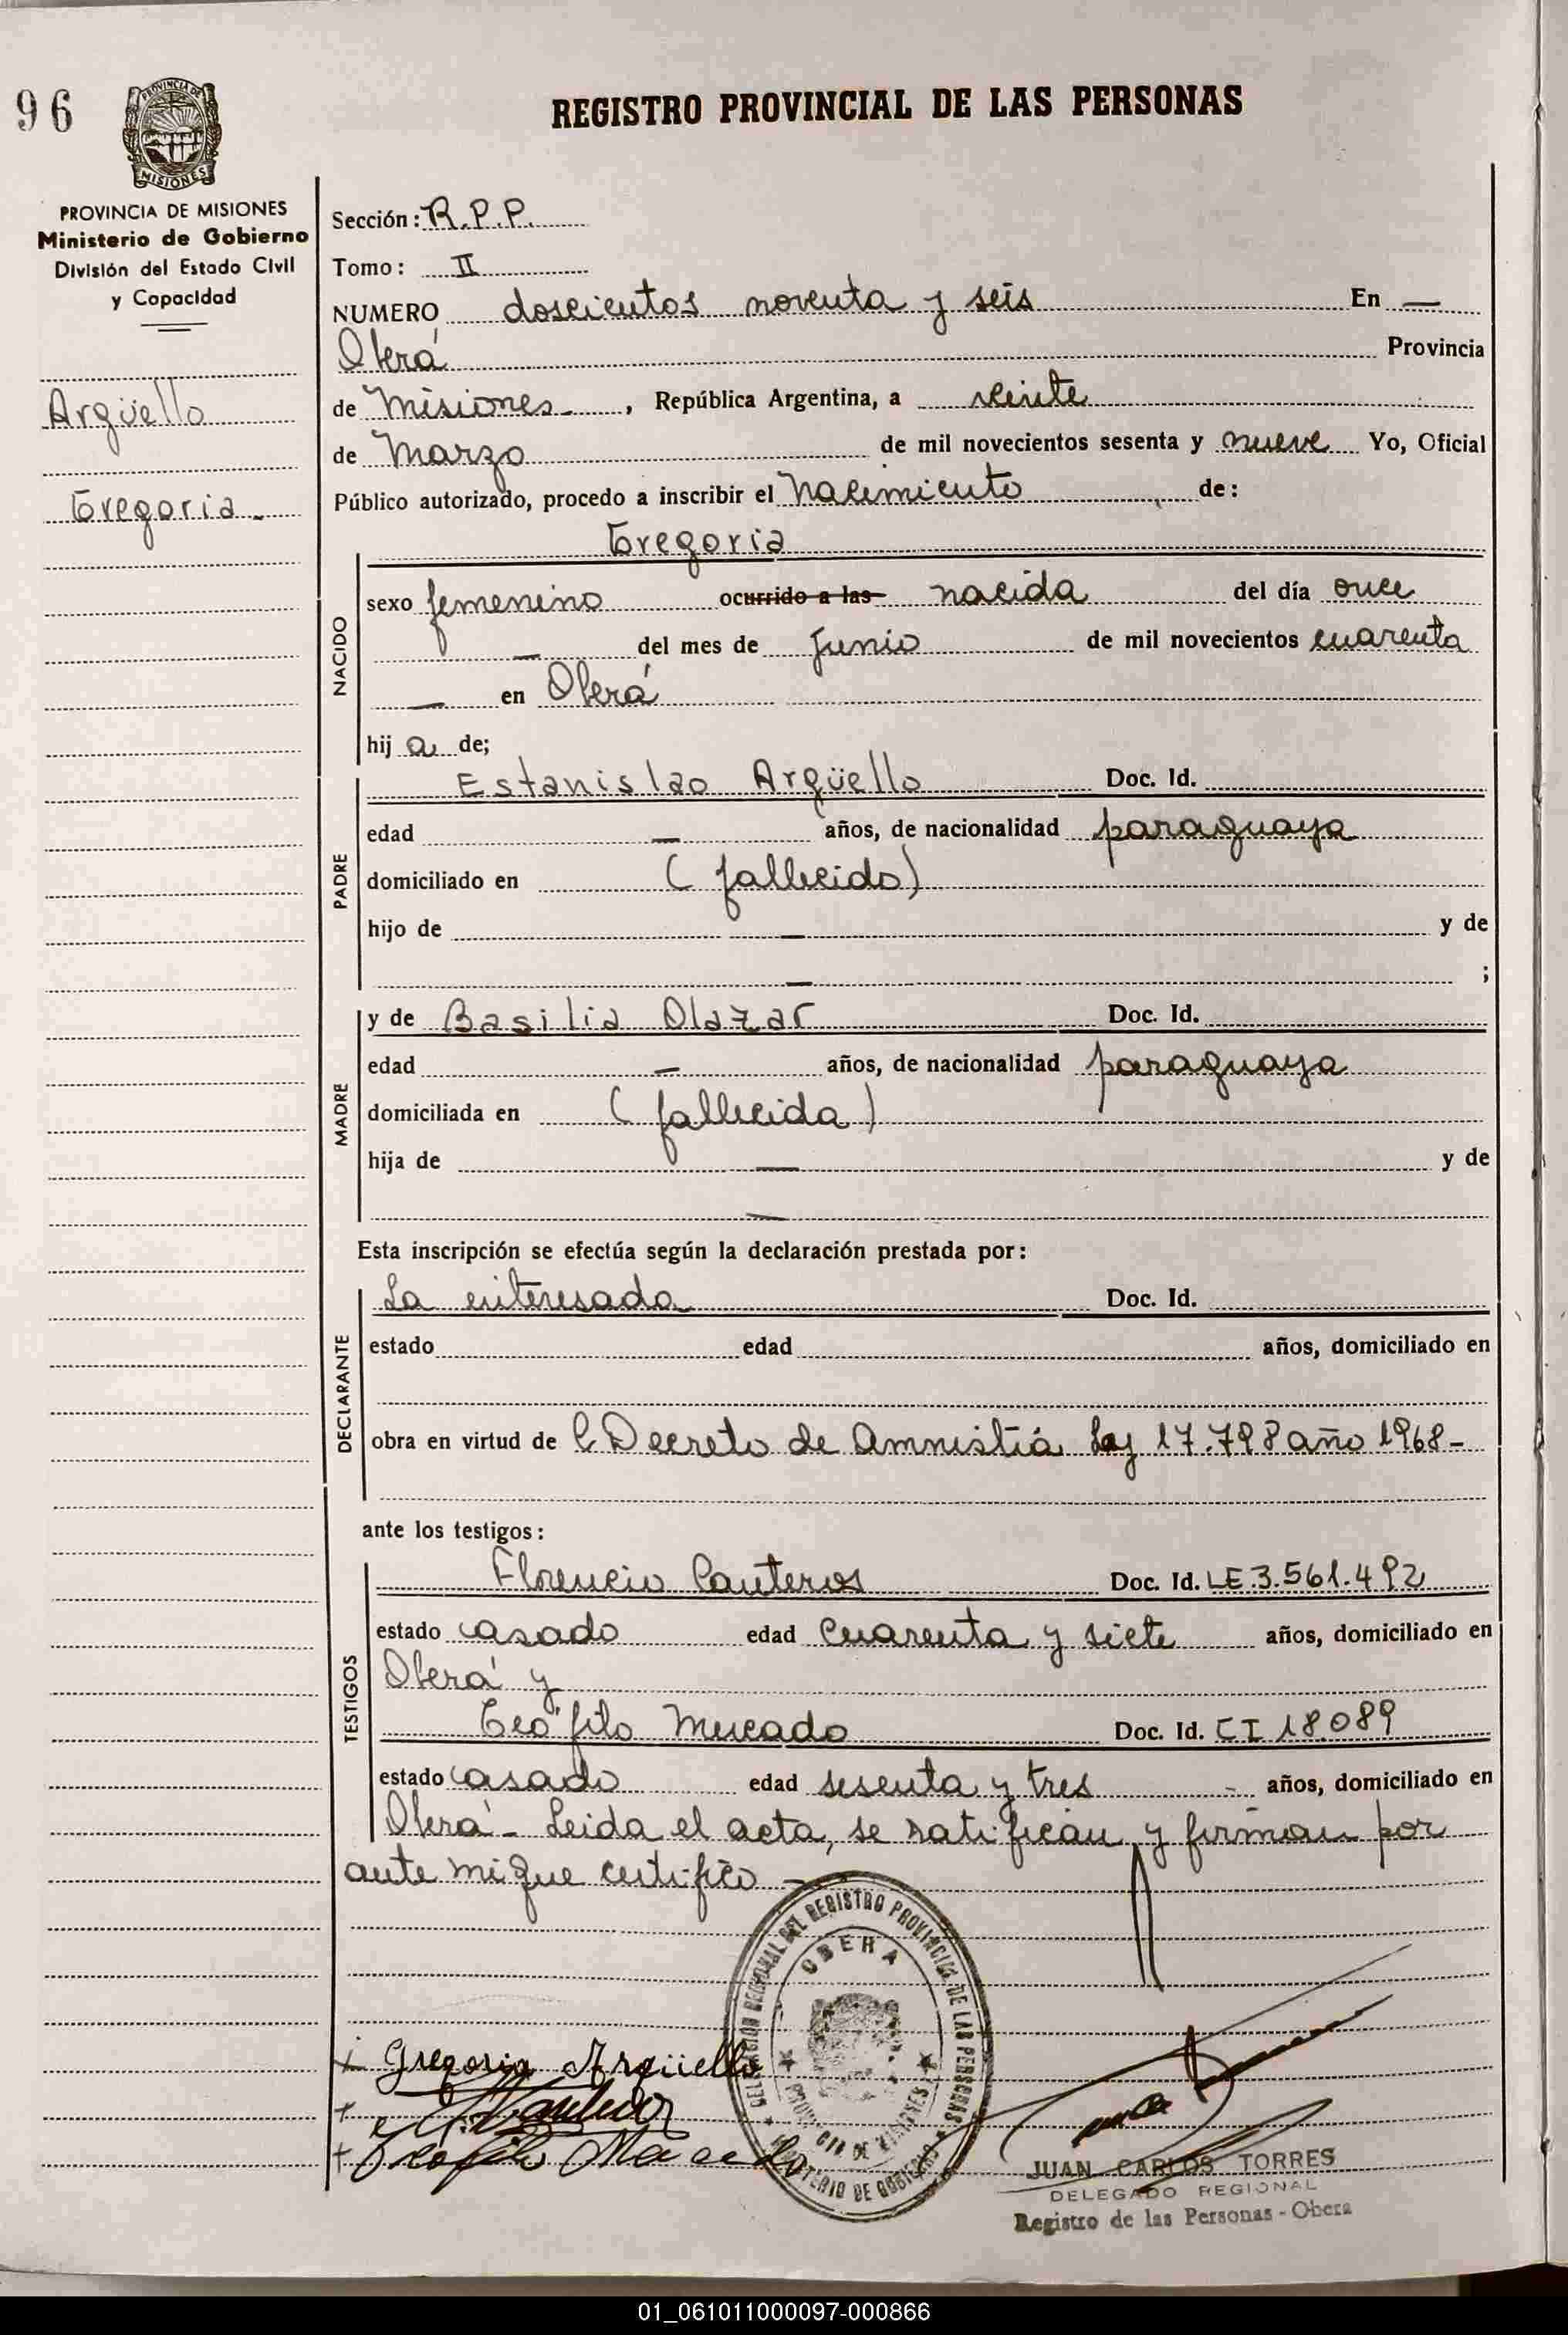 96
PROVINCIA DE
MISIONES
REGISTRO PROVINCIAL DE LAS PERSONAS
PROVINCIA DE MISIONES
Ministerio de Gobierno
División del Estado Civil
y Capacidad
Argüello
Gregoria -
Sección: R.P.P.
Tomo: II
NUMERO doscientos noventa y seis En —
Oberá Provincia
de Misiones , República Argentina, a veinte
de Marzo de mil novecientos sesenta y nueve Yo, Oficial
Público autorizado, procedo a inscribir el Nacimiento de:
Gregoria
NACIDO
sexo femenino ocurrido a las nacida del día once
— del mes de Junio de mil novecientos cuarenta
— en Oberá
hij a de;
PADRE
Estanislao Argüello Doc. Id.
edad — años, de nacionalidad paraguaya
domiciliado en (fallecido)
hijo de — y de
— ;
MADRE
y de Basilia Olazar Doc. Id.
edad — años, de nacionalidad paraguaya
domiciliada en (fallecida)
hija de — y de
—
Esta inscripción se efectúa según la declaración prestada por:
DECLARANTE
La interesada Doc. Id.
estado edad años, domiciliado en
obra en virtud de Decreto de Amnistiá Ley 17.798 año 1968-
ante los testigos:
TESTIGOS
Florencio Canteros Doc. Id. LE.3.561.492
estado casado edad Cuarenta y siete años, domiciliado en
Oberá y
Teófilo Mercado Doc. Id. CI 18.089
estado casado edad sesenta y tres - años, domiciliado en
Oberá - Leida el acta, se ratifican y firman por
ante mi que certifico -
DELEGACION REGIONAL DEL REGISTRO PROVINCIAL DE LAS PERSONAS
OBERA
PROVINCIA DE MISIONES
MINISTERIO DE GOBIERNO
Gregoria Argüello
JUAN CARLOS TORRES
DELEGADO REGIONAL
Registro de las Personas - Obera
01_061011000097-000866